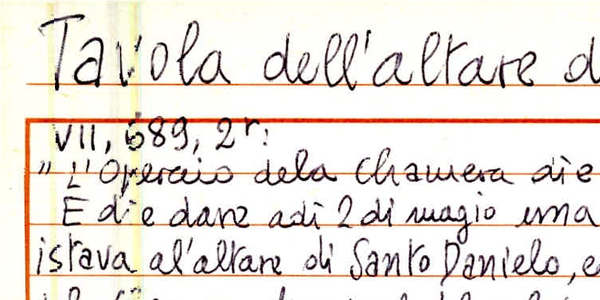 Tavola dell'altare d
VII, 689, 2r:
"L'Operaio dela Chamera die
E die dare adì 2 di magio una
istava al'altare di Santo Danielo, e